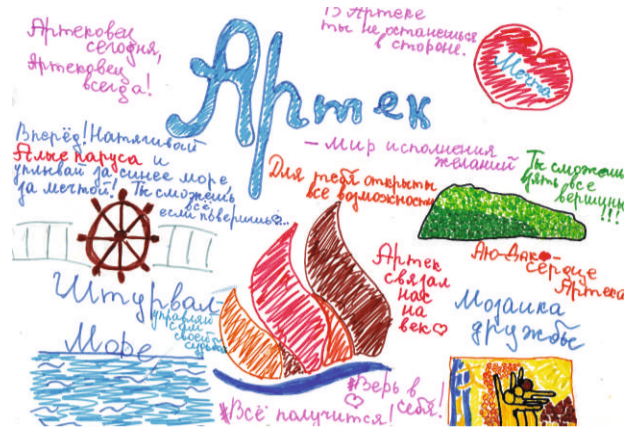 Артековец
сегодня,
Артековец
всегда!
Артек
В Артеке
ты не останешься
в стороне.
Мечта
– Мир исполнения
желаний
Вперёд! Натягивай
Алые паруса и
уплывай за синее море
за мечтой! Ты сможешь
всё,
если поверишь...
Для тебя открыты
все возможности
Ты сможешь
взять все
вершины
!!!
Аю-Даг-
сердце
Артека
Артек
связал
нас
на
век
Штурвал-
управляй
сам
своей
судьбой
Море
Мозаика
дружбы
Верь в
себя!
Всё получится!